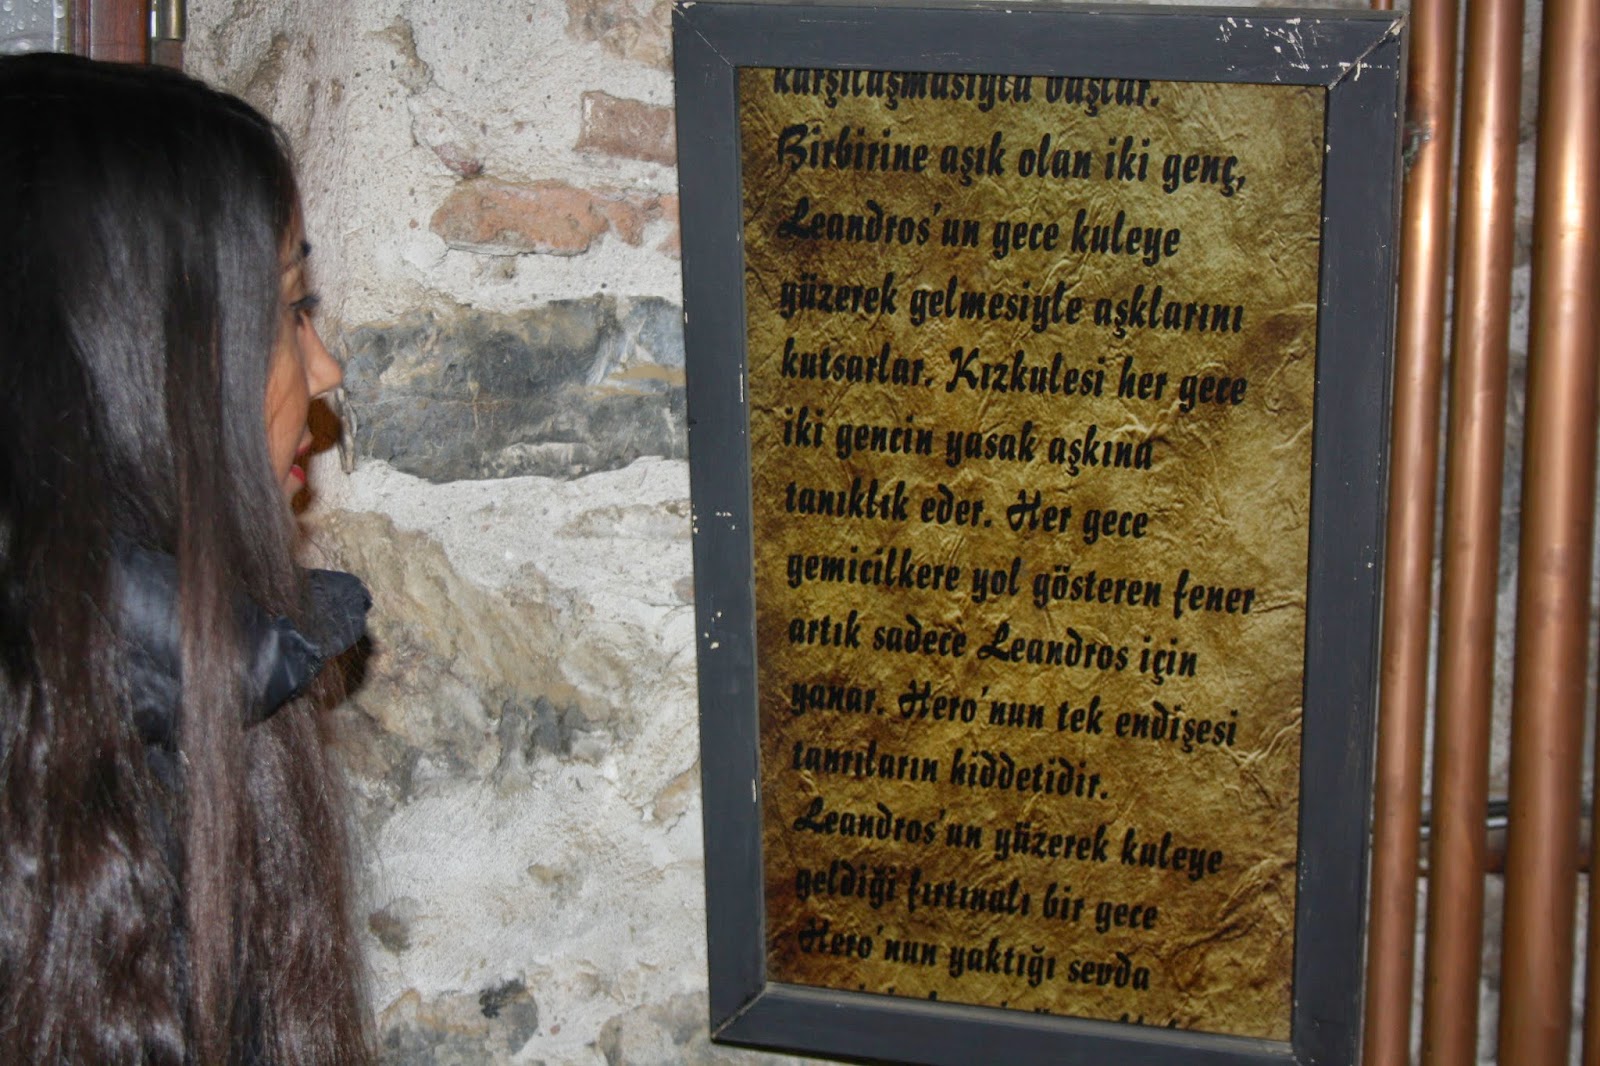 karşılaşmasıyla başlar.
Birbirine aşık olan iki genç,
Leandros'un gece kuleye
yüzerek gelmesiyle aşklarını
kutsarlar. Kızkulesi her gece
iki gencin yasak aşkına
tanıklık eder. Her gece
gemicilkere yol gösteren fener
artık sadece Leandros için
yanar. Hero'nun tek endişesi
tanrıların hiddetidir.
Leandros'un yüzerek kuleye
geldiği fırtınalı bir gece
Hero'nun yaktığı sevda